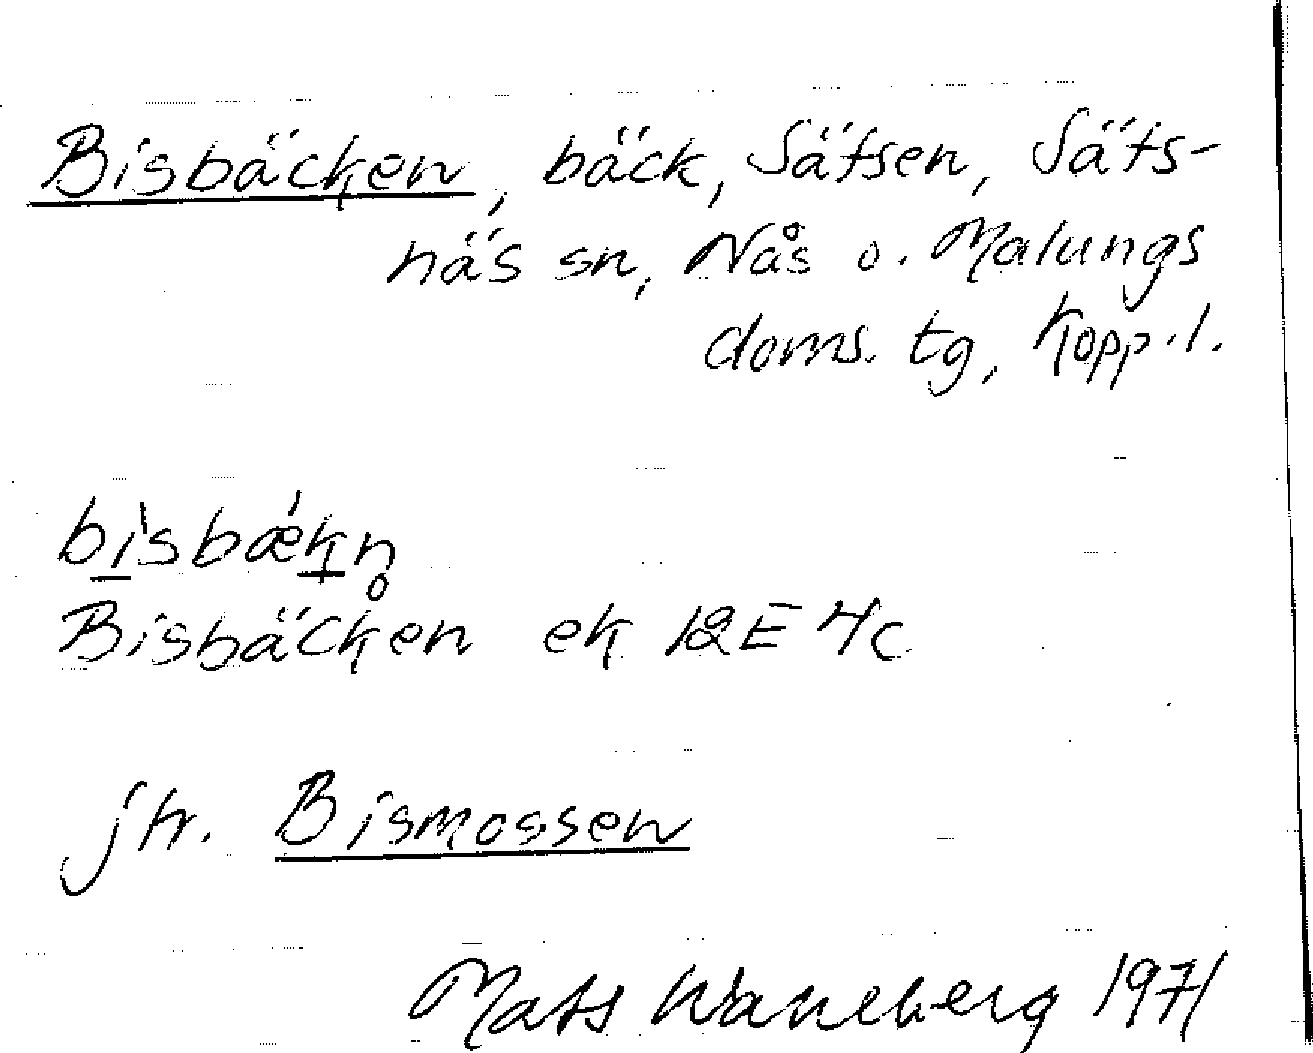 Bisbäcken, bäck, Sätsen, Säts-
näs sn, Nås o. Malungs
doms. tg, Kopp. l.
bìsbǽkn̥
Bisbäcken ek 12E 4c
jfr. Bismossen
Mats Wahlberg 1971